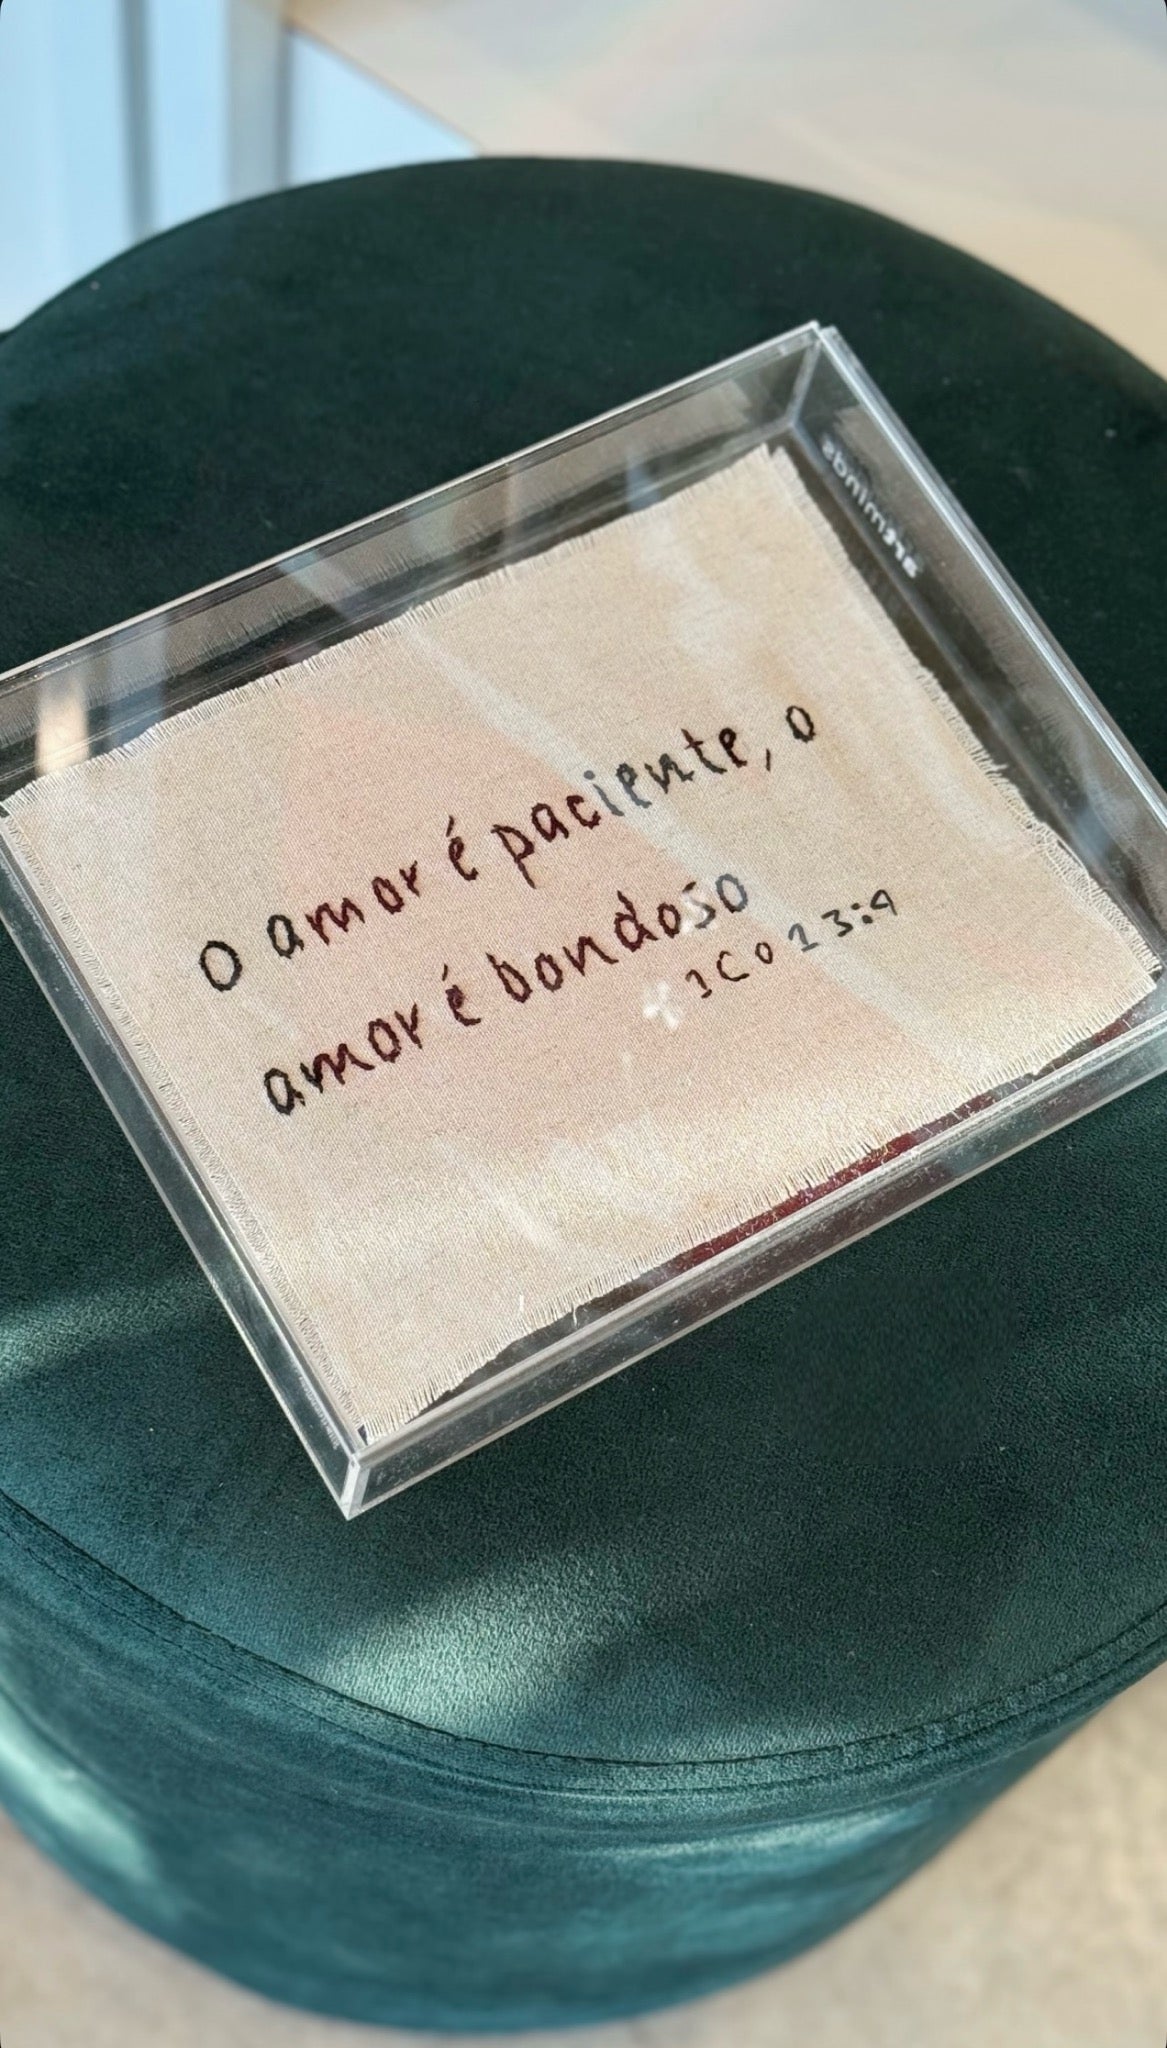 O amor é paciente, o
amor é bondoso
1Co 13:4
artminds